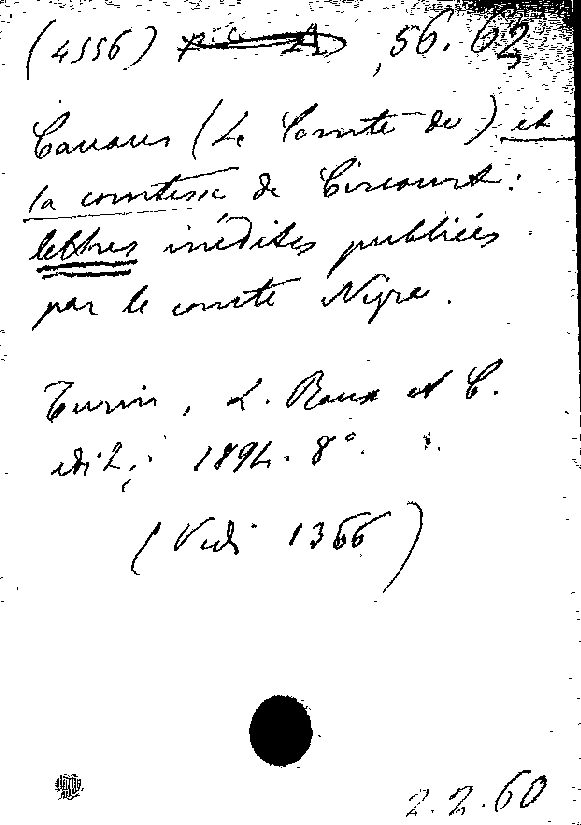 (4556) 56.62
Cavour (Le Comte de) et
la comtesse de Circourt:
lettres inédites publiées
par le comte Nigra.
Turin, L. Roux et C.
edit; 1894. 8°.
(Vedi 1366)
2.2.60